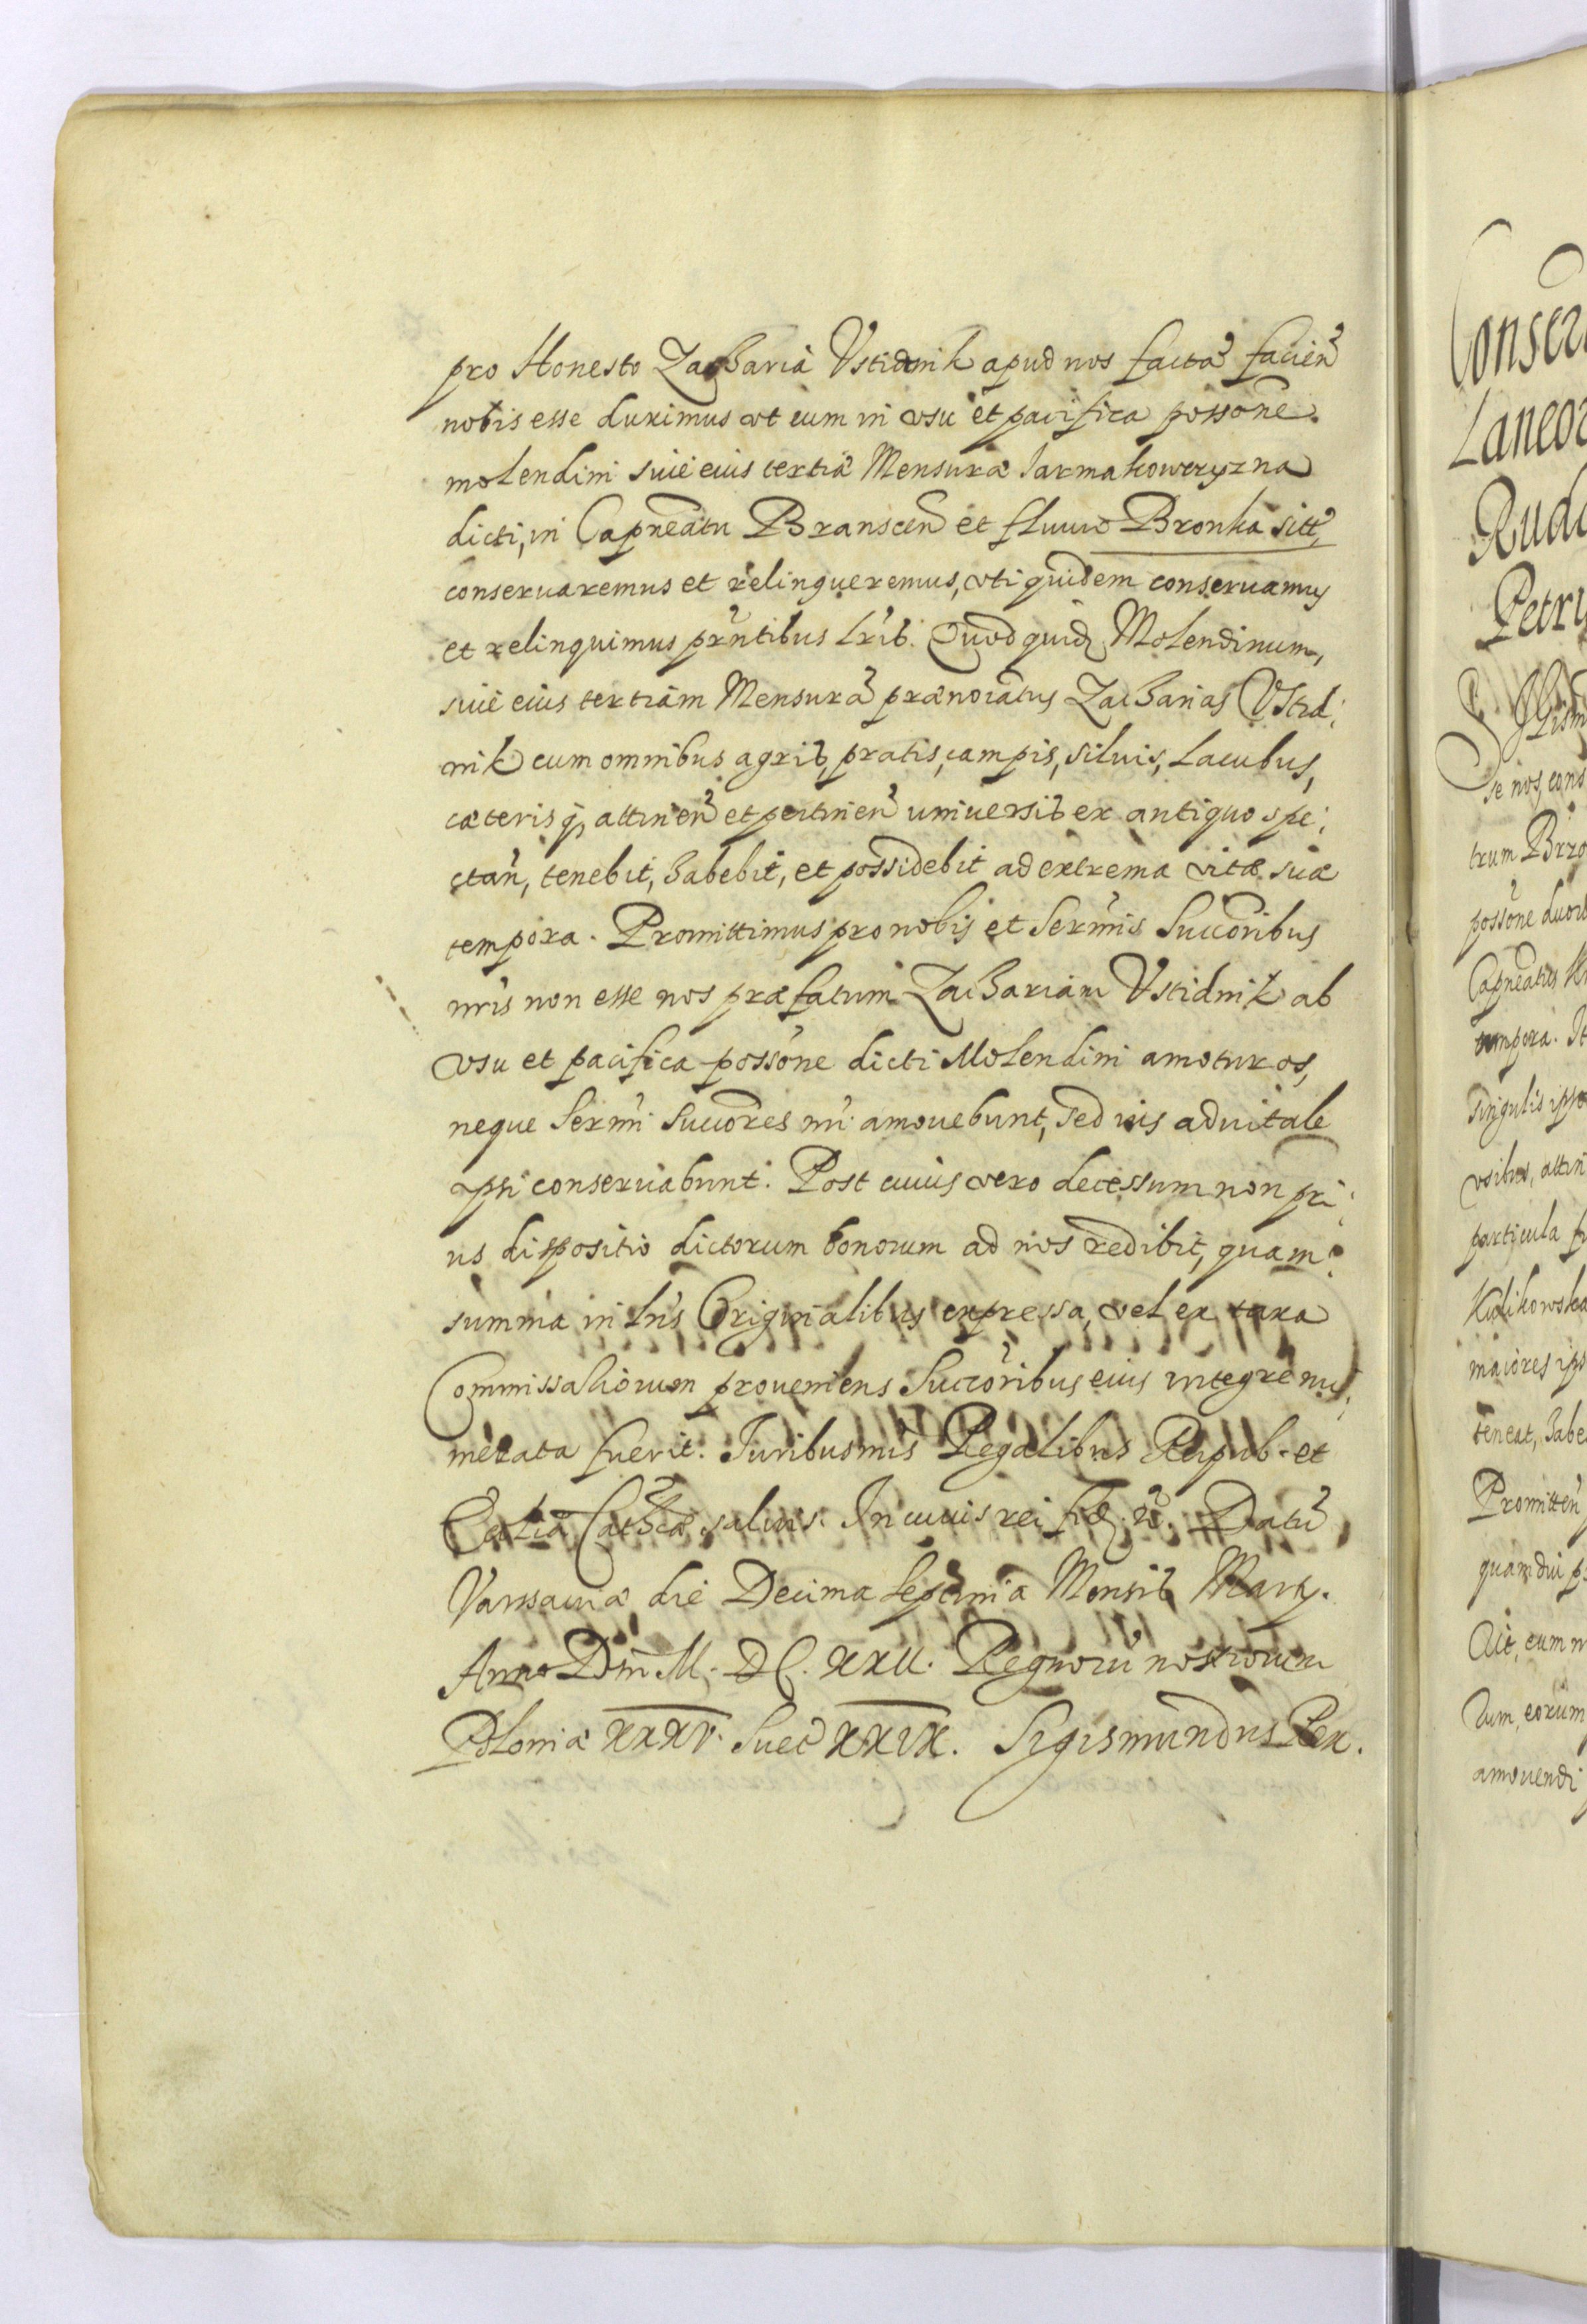 pro Honesto Zachariã Vstidnik apud nos factã facieñ
nobis esse duximus vt eum in vsu et pacifica possone
molendini siue eius tertiæ Mensuræ Jarmakowczyzna
dicti, in Capneatu Branscen̄ et fluuio Bronka sitt,
conseruaremus et relinqueremus, vti quidem conseruamus
et relinquimus prñtibus lrīb. Quod quid Molendinum,
siue eius tertiam Mensurã prænoiatus Zacharias Vstid:
nik cum omnibus agris, pratis, campis, siluis, Lacubus,
cæterisq, attineñ et pertineñ uniuersis ex antiquo spe:
ctañ, tenebit, habebit, et possidebit ad extrema vitæ suæ
tempora. Promittimus pro nobis et Sermis Succoribus
nris non esse nos præfatum Zachariam Vstidnik ab
vsu et pacifica possone dicti Molendini amoturos,
neque Sermi Succores nri amouebunt, sed ius aduitale
ipsi conseruabunt. Post cuius vero decessum non pri:
us dispositio dictorum bonorum ad nos redibit, quam
summa in lris Originalibus expressa, vel ex taxa
Commissariorum proueniens Succoribus eius integre nu:
merata fuerit. Juribus nris Regalibus Reipub. et
Ecclia Cathca saluis. In cuius rei fid. &. Datũ
Varssauiæ die Decima Septima Mensis Martij.
Anno Dni M. DC. XXII. Regnorũ nostrorum
Poloniæ XXXV. Suec XXIX. Sigismundus Rex.
Conser
Laneor
Rud
Petri
se nos, cons
trum Brzo
possone duor
Capneatus K
tempora. It
singulis ips
vsibus, attin
particula
Kulikowska
maiores ips
teneat, habe
Promitteñ
quamdiu
eum
dum, eorum
amouendi